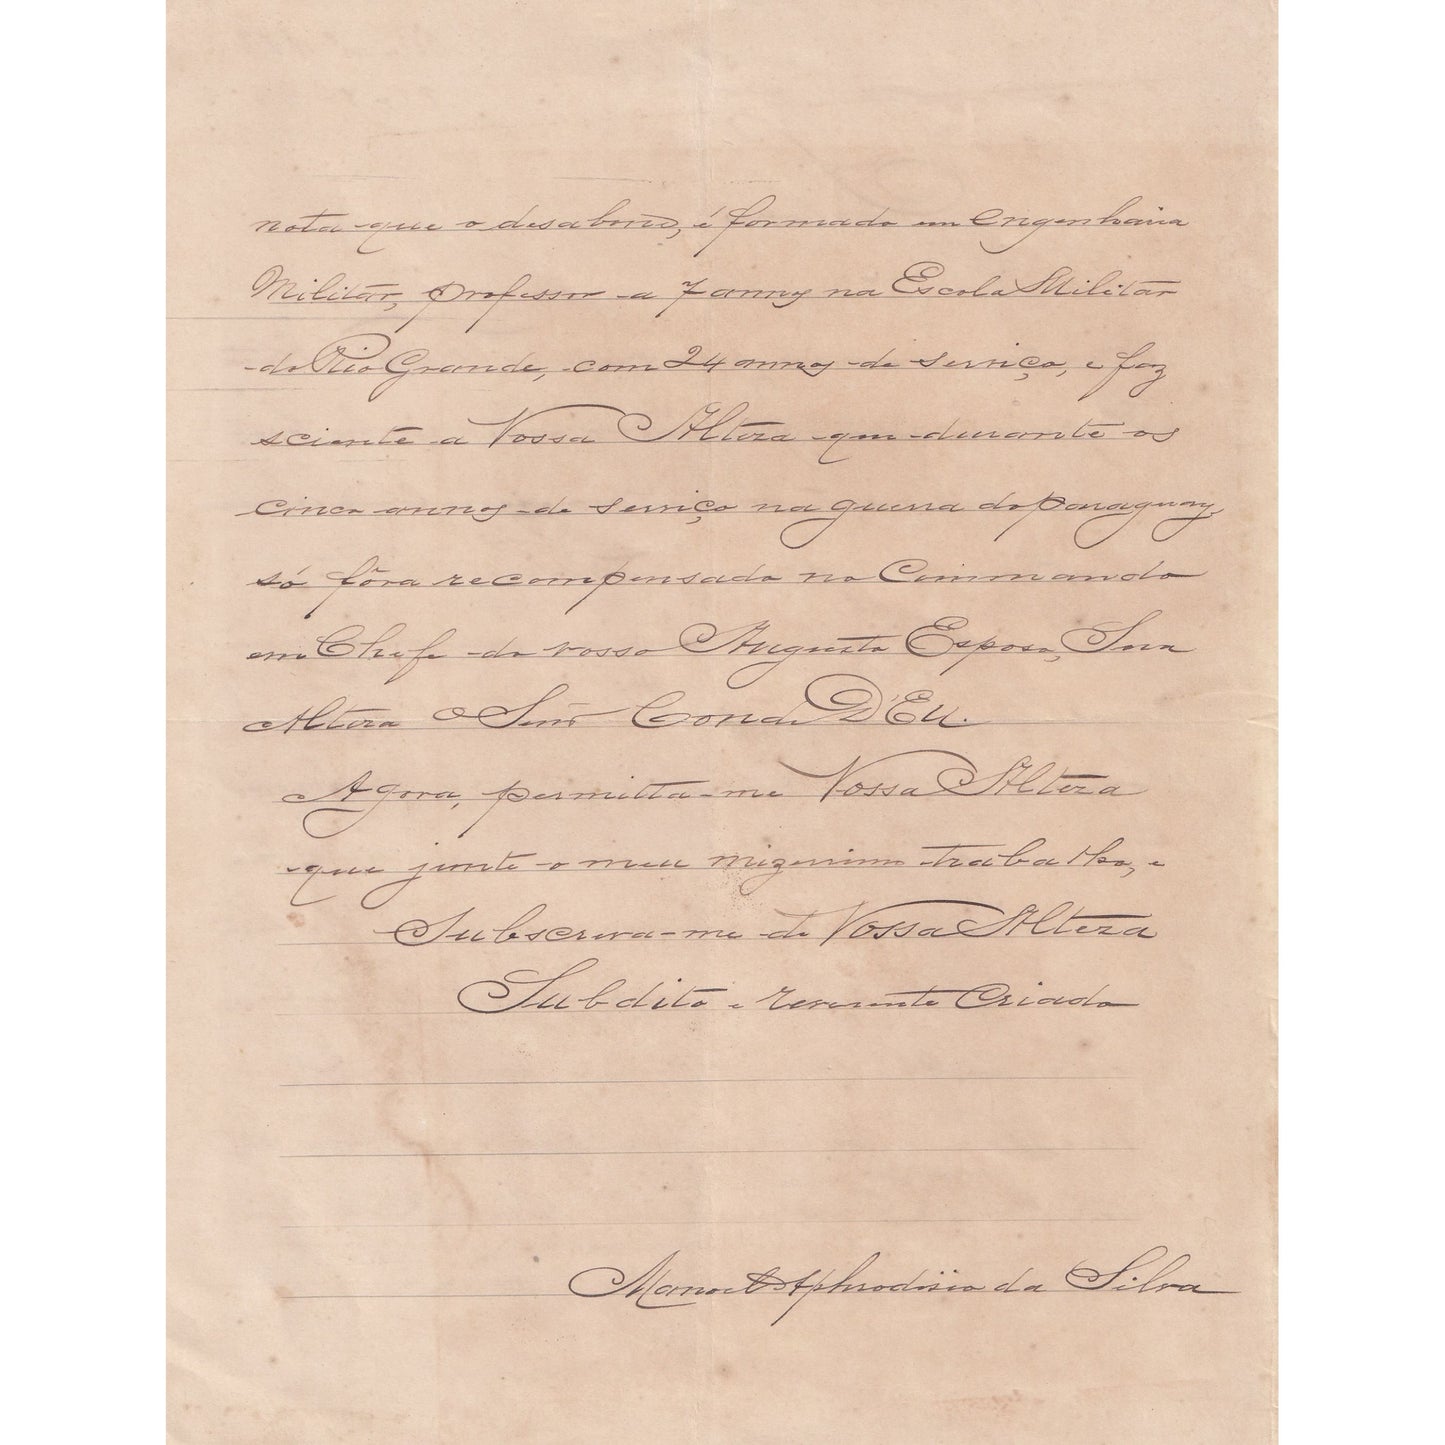 nota que o desabone, é formado em Engenharia
Militar, professor a 7 annos na Escola Militar
do Rio Grande, com 24 annos de serviço, e faz
sciente a Vossa Alteza que durante os
cinco annos de serviço na guerra do Paraguay,
só fôra recompensado no Commando
em Chefe do vosso Augusto Esposo, Sua
Alteza O Senr Conde D'Eu.
Agora, permitta-me Vossa Alteza
que junte o meu mizerrimo trabalho, e
Subscreva-me de Vossa Alteza
Subdito e reverente Criado
Manoel Aphrodisio da Silva